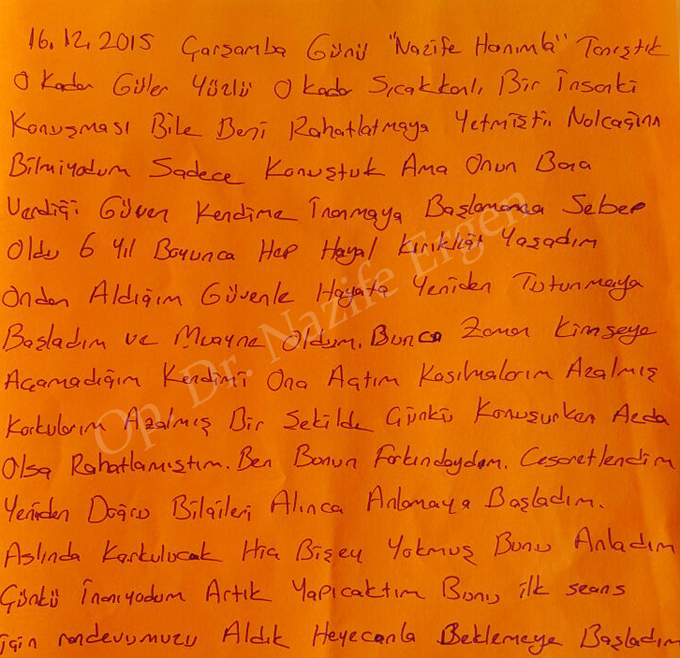 16.12.2015 Çarşamba Günü "Nazife Hanımla" Tanıştık
O Kadar Güler Yüzlü O Kadar Sıcakkanlı Bir İnsanki
Konuşması Bile Beni Rahatlatmaya Yetmişti. Nolcağını
Bilmiyodum Sadece Konuştuk Ama Onun Bana
Verdiği Güven Kendime İnanmaya Başlamama Sebep
Oldu 6 Yıl Boyunca Hep Hayal Kırıklığı Yaşadım
Ondan Aldığım Güvenle Hayata Yeniden Tutunmaya
Başladım ve Muayne Oldum. Bunca Zaman Kimseye
Açamadığım Kendimi Ona Açtım Kasılmalarım Azalmış
Korkularım Azalmış Bir Şekilde Çünkü Konuşurken Azda
Olsa Rahatlamıştım. Ben Bunun Farkındaydım. Cesaretlendim
Yeniden Doğru Bilgileri Alınca Anlamaya Başladım.
Aslında Korkulucak Hiç Bişey Yokmuş Bunu Anladım
Çünkü İnanıyodum Artık Yapıcaktım Bunu ilk seans
için randevumuzu Aldık Heyecanla Beklemeye Başladım
Op. Dr. Nazife Ergen